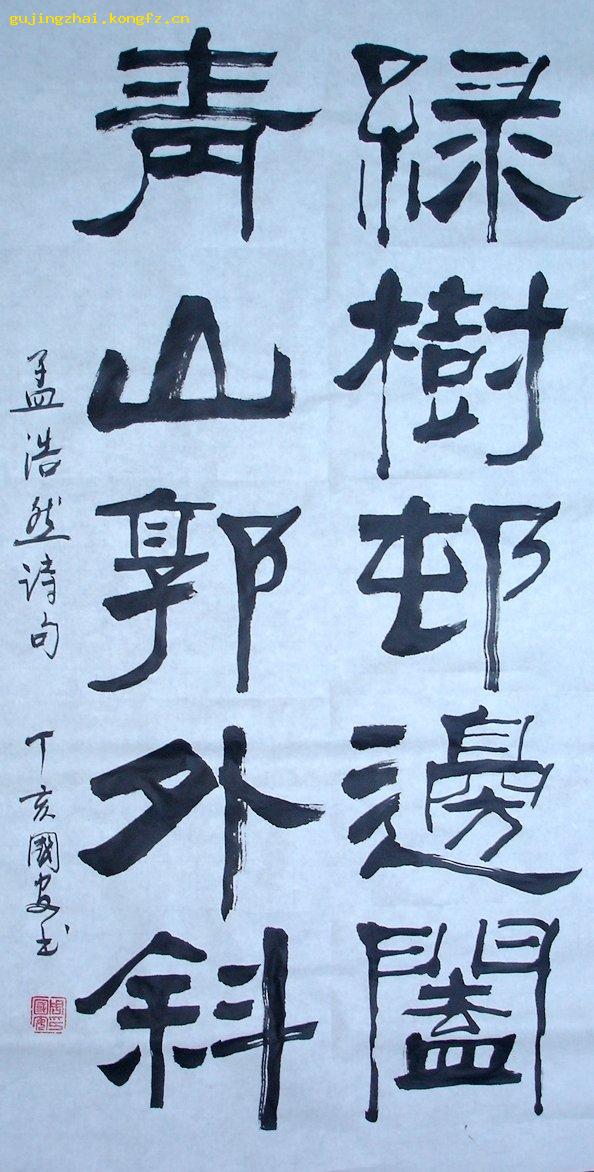 gujingzhai.kongfz.cn
緑樹邨邊闔
青山郭外斜
孟浩然诗句 丁亥國安书